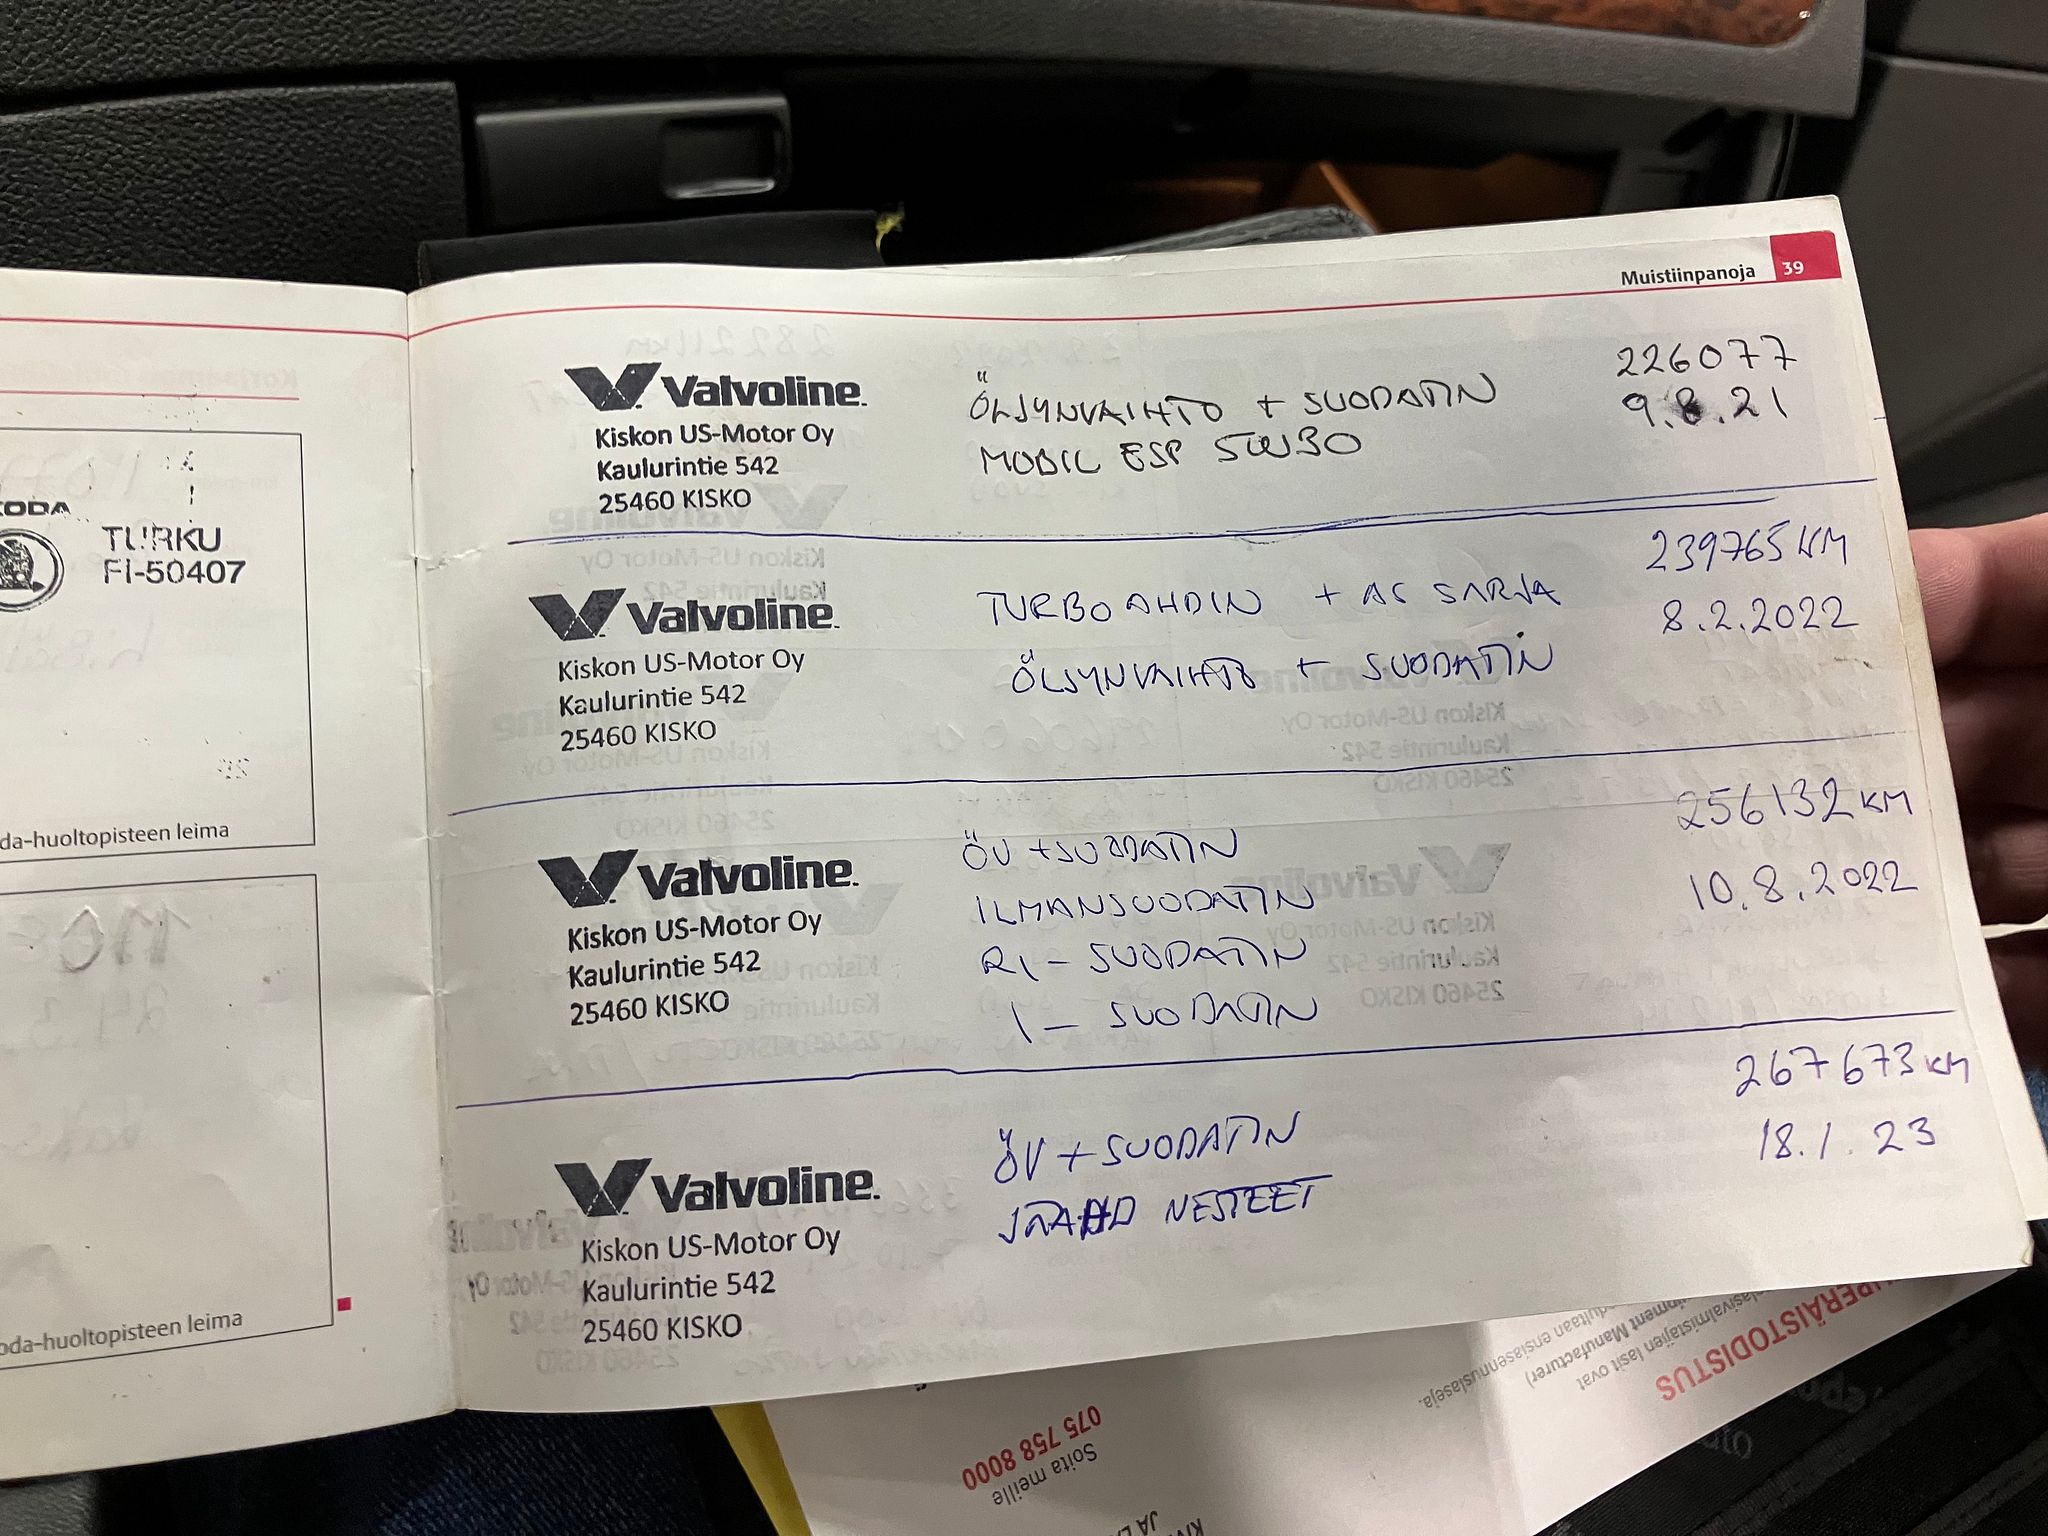 Muistiinpanoja 39
Valvoline
Kiskon US-Motor Oy
Kaulurintie 542
25460 KISKO
ÖLJYNVAIHTO + SUODATIN
MOBIL ESP 5W30
226077
9.8.21
Valvoline
Kiskon US-Motor Oy
Kaulurintie 542
25460 KISKO
TURBOAHDIN + AS SARJA
ÖLJYNVAIHTO + SUODATIN
239765 KM
8.2.2022
Valvoline
Kiskon US-Motor Oy
Kaulurintie 542
25460 KISKO
ÖV + SUODATIN
ILMANSUODATIN
RI - SUODATIN
I - SUODATIN
256132 KM
10.8.2022
Valvoline
Kiskon US-Motor Oy
Kaulurintie 542
25460 KISKO
ÖV + SUODATIN
NESTEET
267673 KM
18.1.23
TURKU
FI-50407
da-huoltopisteen leima
oda-huoltopisteen leima
PERÄISTODISTUS
lasivalmistajien lasit ovat
ipment Manufacturer)
edultaan ensiasennuslaseja.
Soita meille
075 758 8000